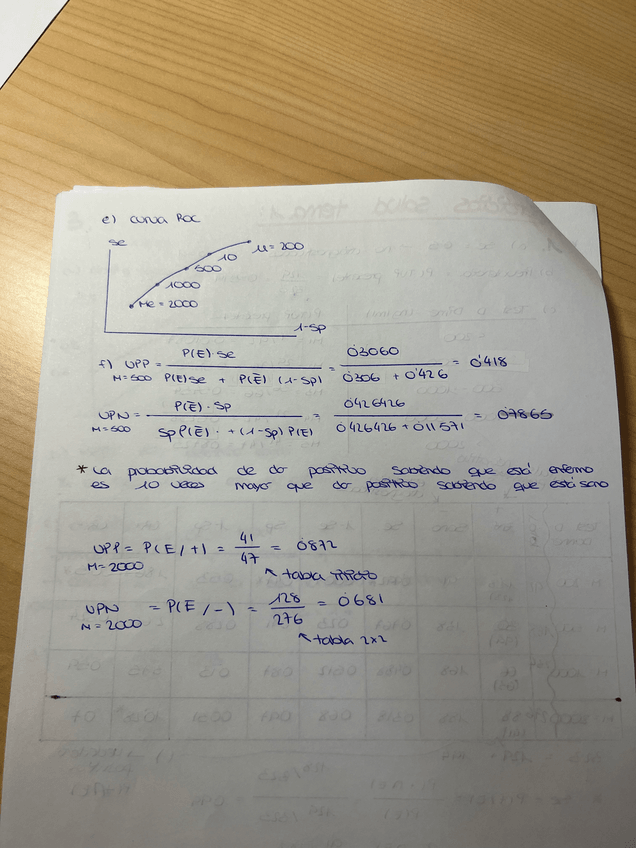 e) curva ROC
se
μ=200
10
500
1000
Me = 2000
1-sp
f) VPP = P(E)·se / P(E)se + P(Ē) (1-Sp) = 0'3060 / 0'306 + 0'426 = 0'418
M=500
VPN = P(Ē)·Sp / SpP(Ē)· + (1-Sp) P(E) = 0'426426 / 0'426426 + 0'11571 = 0'7865
M=500
* La probabilidad de da positivo sabiendo que está enfermo
es 10 veces mayor que da positivo sabiendo que está sano
VPP = P(E/+) = 41/47 = 0'872
M=2000
↖ tabla
VPN = P(E/-) = 128/276 = 0'681
M=2000
↖ tabla 2x2